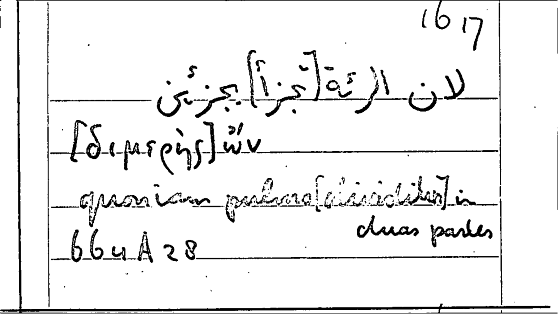 1617
لان الرئة [تجزأ] بجزئين
[διμερὴς] ὤν
quoniam pulmo [dividitur] in
duas partes
664 A 28